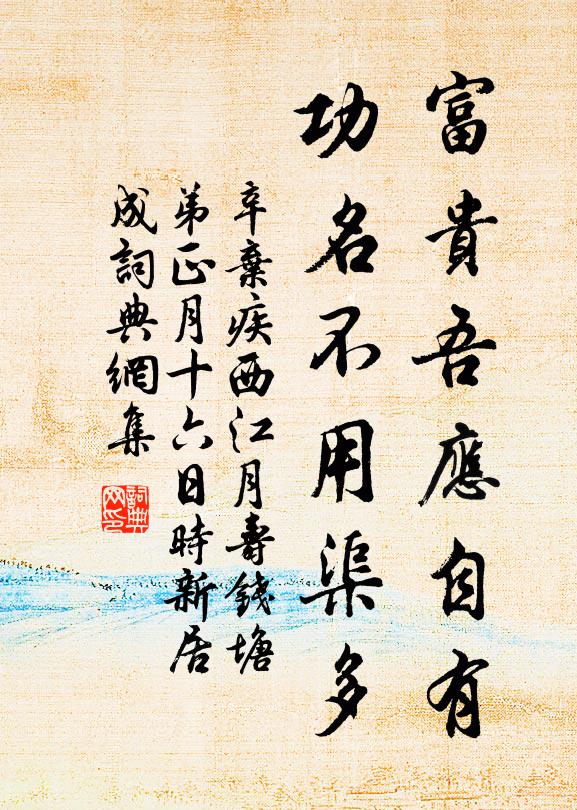 富貴吾應自有
功名不用渠多
辛棄疾西江月壽錢塘
弟正月十六日時新居
成詞典網集
詞典
网印